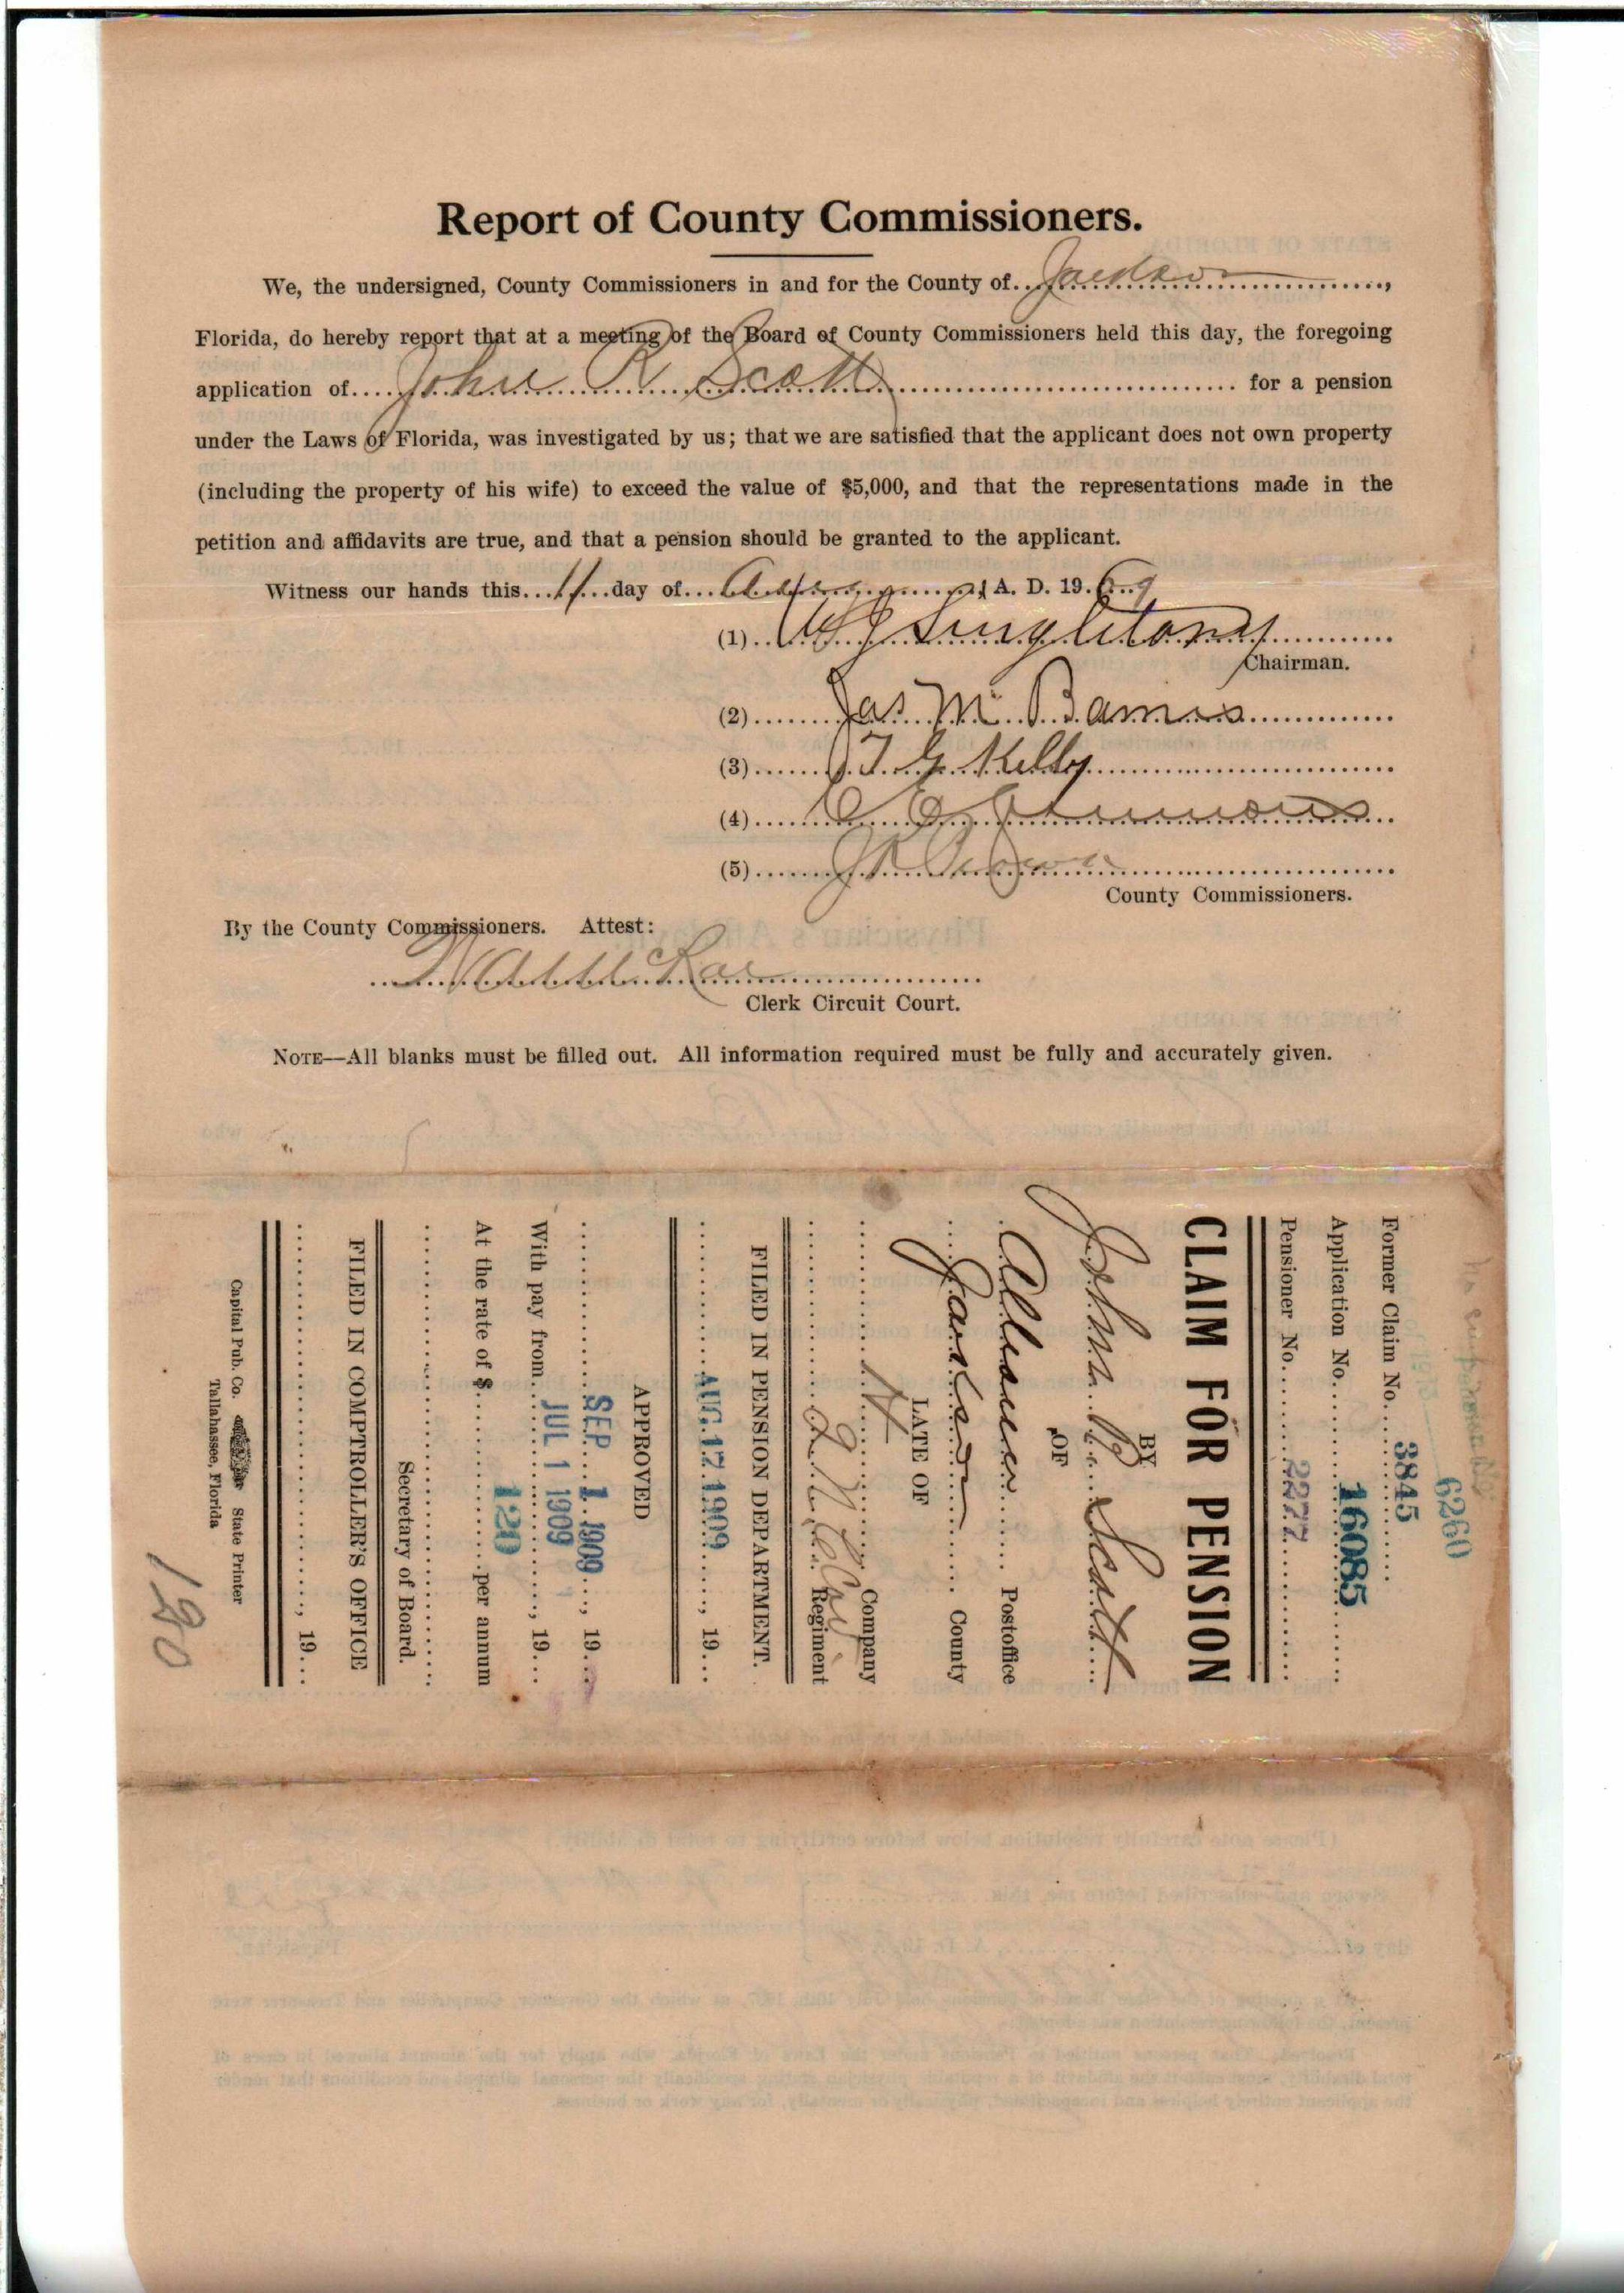 Report of County Commissioners.
We, the undersigned, County Commissioners in and for the County of Jackson,
Florida, do hereby report that at a meeting of the Board of County Commissioners held this day, the foregoing
application of John R Scott for a pension
under the Laws of Florida, was investigated by us; that we are satisfied that the applicant does not own property
(including the property of his wife) to exceed the value of $5,000, and that the representations made in the
petition and affidavits are true, and that a pension should be granted to the applicant.
Witness our hands this 11 day of Aug A. D. 1909
(1) Singletary
Chairman.
(2) Jas M Barnes
(3) T G Kelly
(4)
(5)
County Commissioners.
By the County Commissioners. Attest:
Clerk Circuit Court.
NOTE—All blanks must be filled out. All information required must be fully and accurately given.
6260
Former Claim No. 3845
Application No. 16085
Pensioner No. 2277
CLAIM FOR PENSION
BY
John R. Scott
OF
Postoffice
Jackson County
LATE OF
H Company
Regiment
FILED IN PENSION DEPARTMENT.
AUG 12 1909, 19
APPROVED
SEP 1 1909, 19
With pay from JUL 1 1909, 19
At the rate of $ 120 per annum
Secretary of Board.
FILED IN COMPTROLLER'S OFFICE
, 19
Capital Pub. Co. State Printer
Tallahassee, Florida
120